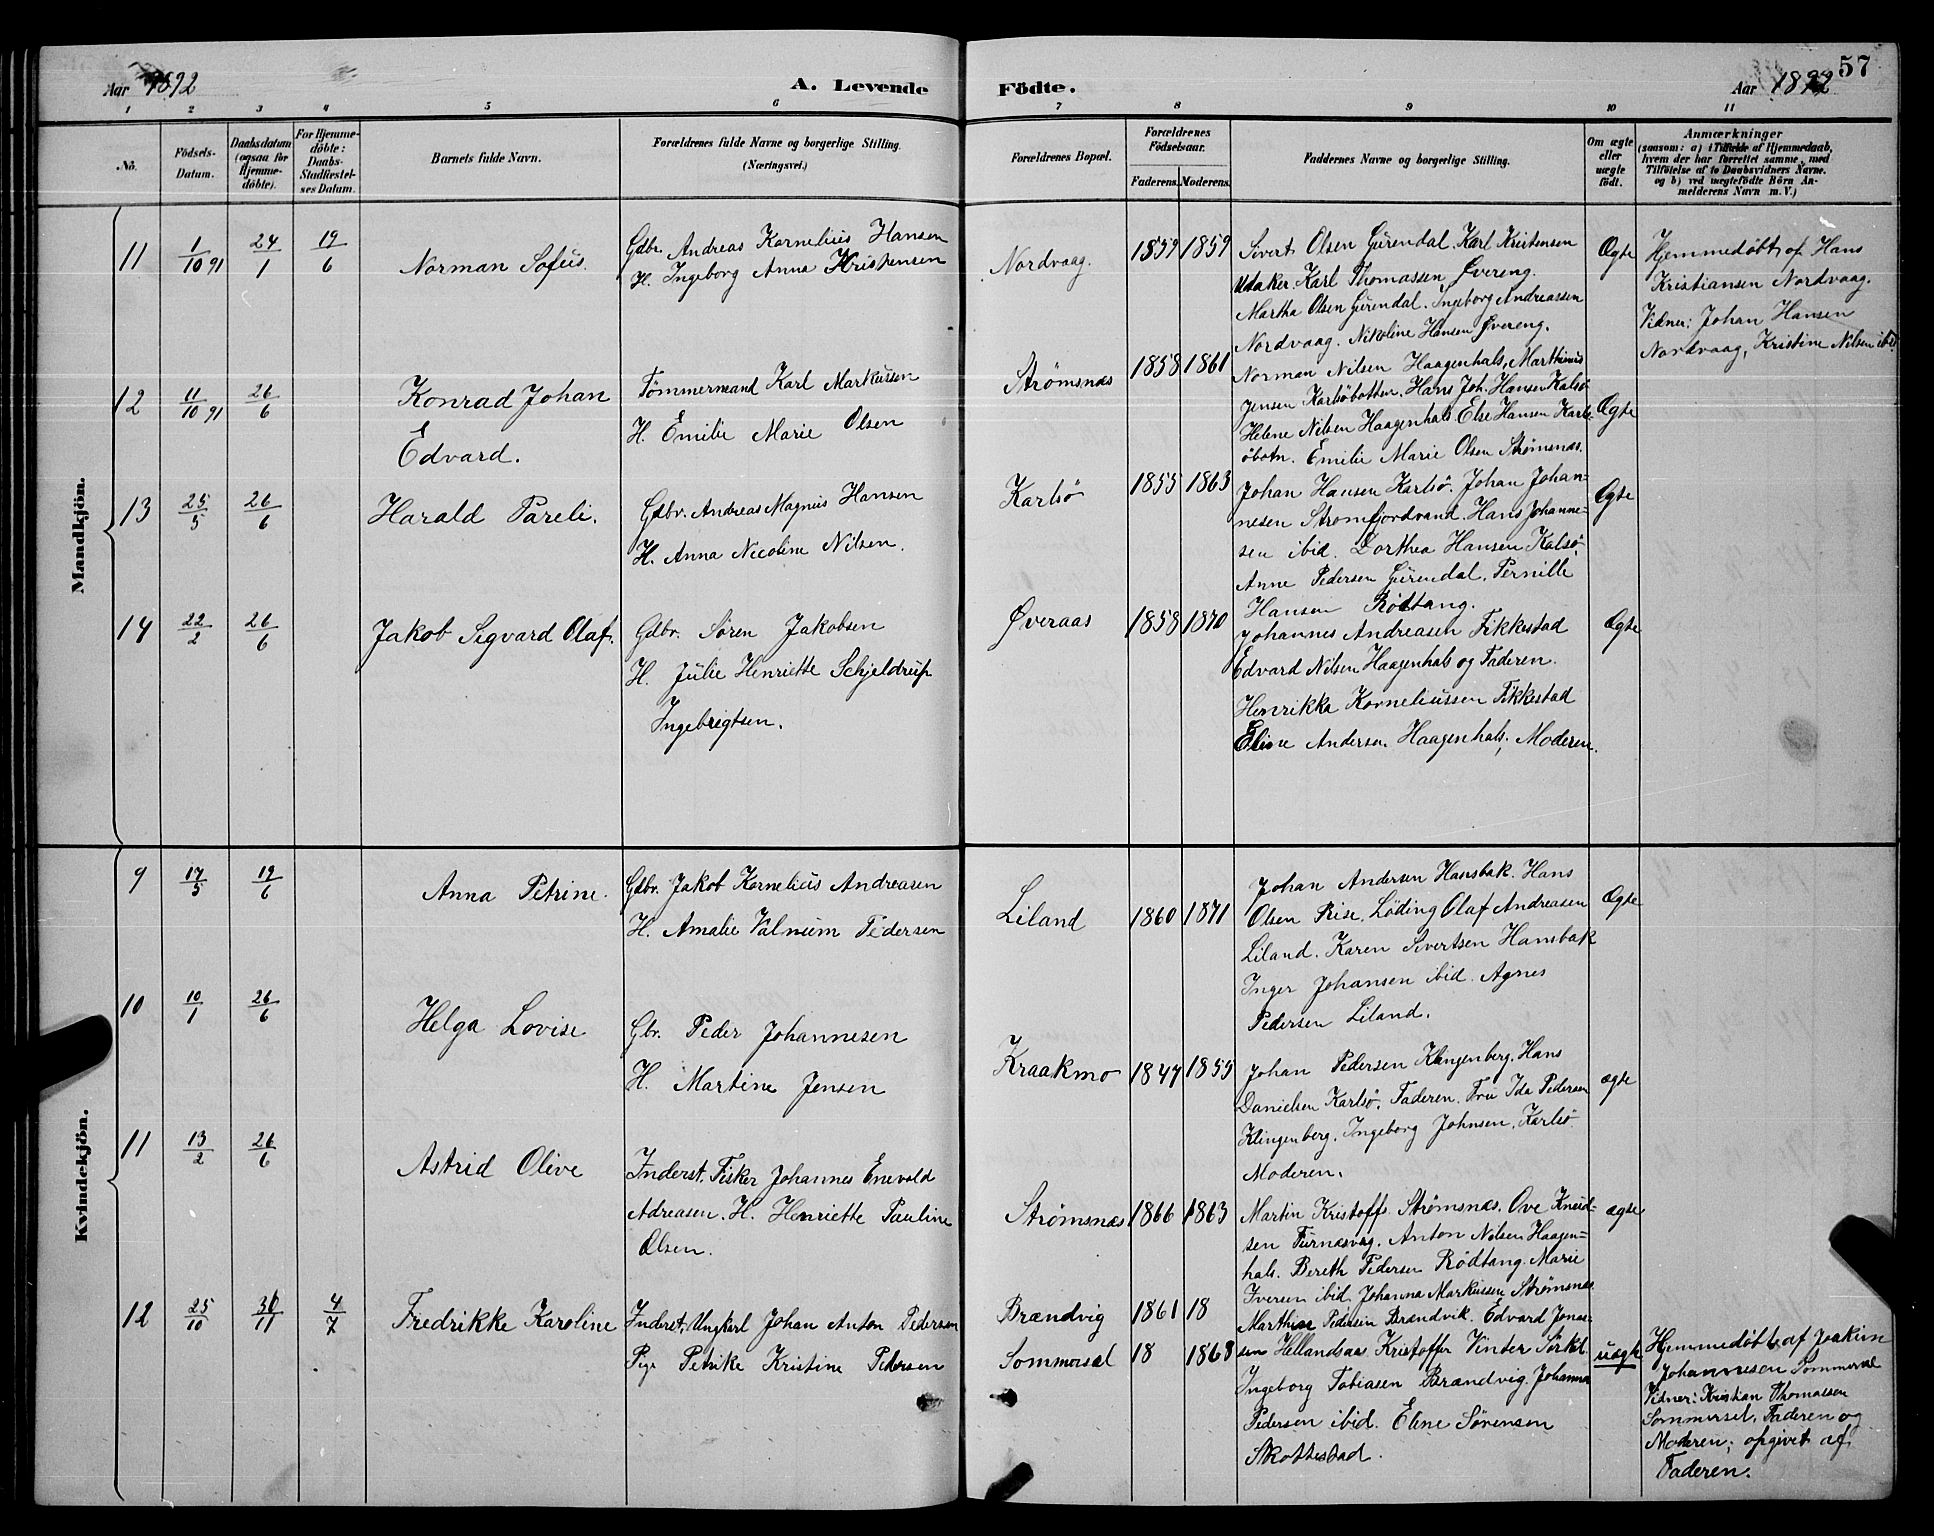 57
Aar 1892
A. Levende
Födte.
Aar 1892
1 2 3 4 5 6 7 8 9 10 11
No.
Födsels-Datum.
Daabsdatum (ogsaa for Hjemme-döbte).
For Hjemme-döbte: Daabs-Stadfæstel-ses Datum.
Barnets fulde Navn.
Forældrenes fulde Navne og borgerlige Stilling.
(Næringsvei.)
Forældrenes Bopæl.
Forældrenes Födselsaar.
Faderens. Moderens.
Faddernes Navne og borgerlige Stilling.
Om ægte eller uægte födt.
Anmærkninger
(saasom: a) i Tilfælde af Hjemmedaab,
hvem der har forrettet samme, med
Tilföielse af to Daabsvidners Navne.
og b) ved uægtefödte Börn An-
melderens Navn m. V.)
Mandkjön.
11 1/10 91 24/1 19/6 Norman Sofus.
Gdbr. Andreas Kornelius Hansen
H. Ingeborg Anna Kristensen
Nordvaag. 1859 1859
Sivert Olsen Gurendal. Karl Kristensen
Udaker. Karl Thomassen Øvereng.
Martha Olsen Gurendal. Ingeborg Andreassen
Nordvaag. Nikoline Hansen Øvereng.
Ægte
Hjemmedøbt af Hans
Kristiansen Nordvaag.
Vidner: Johan Hansen
Nordvaag, Kristine Nilsen ibid
12 11/10 91 26/6 Konrad Johan
Edvard.
Tømmermand Karl Markussen
H. Emilie Marie Olsen
Strømsnæs 1858 1861
Norman Nilsen Haagenhals, Marthinus
Jensen Karlsöbotten. Hans Joh. Hansen Kalsö
Helene Nilsen Haagenhals. Else Hansen Karls-
öbotn. Emilie Marie Olsen Strømsnæs.
Ægte
13 25/5 26/6 Harald Pareli.
Gdbr. Andreas Magnus Hansen
H. Anna Nicoline Nilsen.
Karlsö 1855 1863
Johan Hansen Karlsö. Johan Johan-
nesen Strømfjordvand. Hans Johanne-
sen ibid. Dorthea Hansen Kalsö
Anne Pedersen Gurendal. Pernille
Hansen Rödtang.
Ægte
14 22/2 26/6 Jakob Sigvard Olaf.
Gdbr. Søren Jakobsen
H. Julie Henriette Schjeldrup
Ingebrigtsen.
Øveraas 1858 1870
Johannes Andreasen Fikkestad
Edvard Nilsen Haagenhals og Faderen.
Henrikka Korneliussen Fikkestad
Eline Andersen Haagenhals, Moderen.
Ægte
Kvindekjön.
9 17/5 19/6 Anna Petrine.
Gdbr. Jakob Kornelius Andreasen
H. Amalie Valnum Pedersen
Liland 1860 1871
Johan Andersen Hansbak. Hans
Olsen Rise. Løding Olaf Andreasen
Liland. Karen Sivertsen Hansbak
Inger Johansen ibid. Agnes
Pedersen Liland.
Ægte
10 10/1 26/6 Helga Lovise
Gbr. Peder Johannesen
H. Martine Jensen
Kraakmo 1847 1855
Johan Pedersen Klingenberg. Hans
Danielsen Karlsö. Faderen. Fru Ida Pedersen
Klingenberg. Ingeborg Johnsen, Karlsö
Moderen.
ægte
11 13/2 26/6 Astrid Olive
Inderst. Fisker Johannes Enevold
Adreasen. H. Henriette Pauline
Olsen.
Strømsnæs 1866 1863
Martin Kristoffs. Strømsnæs. Ove Knud-
sen Furnæsvag. Anton Nilsen Haagen-
hals. Bereth Pedersen Rödtang. Marie
Iversen ibid. Johanna Markussen Strømsnæs.
ægte
12 25/10 30/11 4/7 Fredrikke Karoline
Inderst, Ungkarl Johan Anton Pedersen
Pige Petrike Kristine Pedersen
Brændvig 1861 18
Sommersæl 18 1868
Marthine Pedersen Brændvik. Edvard Jonas-
sen Hellandsaa. Kristoffer Vinter Sörkl.
Ingeborg Tobiasen Brændvig. Johanna
Pedersen ibid. Eline Sørensen
Skottestad.
uægte
Hjemmedøbt, af Joakim
Johannesen Sommersæl
Vidner: Kristian Thomassen
Sommersel. Faderen og
Moderen; opgivet af
Faderen.